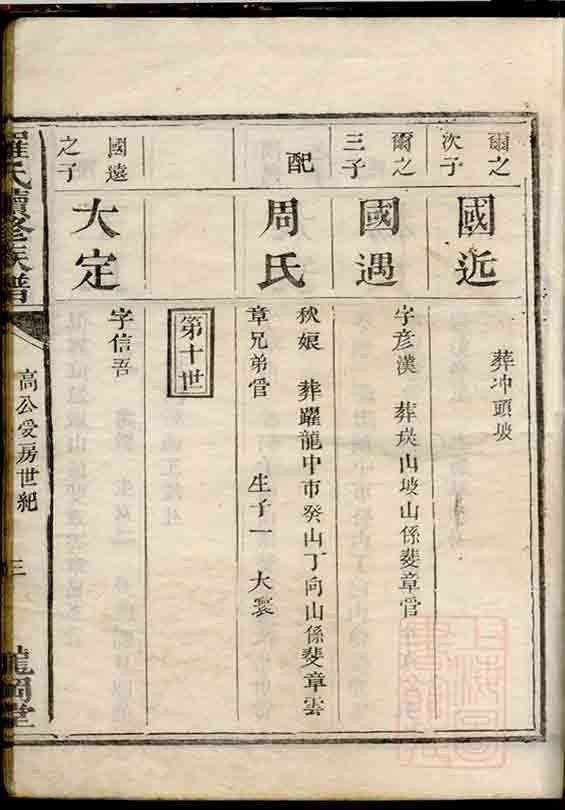 爾之次子
國近
葬冲頭坡
爾之三子
國遇
字彥漢 葬
山坡山係斐章管
配
周氏
秋娘 葬躍龍中市癸山丁向山係斐章雲
章兄弟管 生子一 大寰
第十世
國遠之子
大定
字信吾
羅氏續修族譜
高公受房世紀
三
龍岡堂